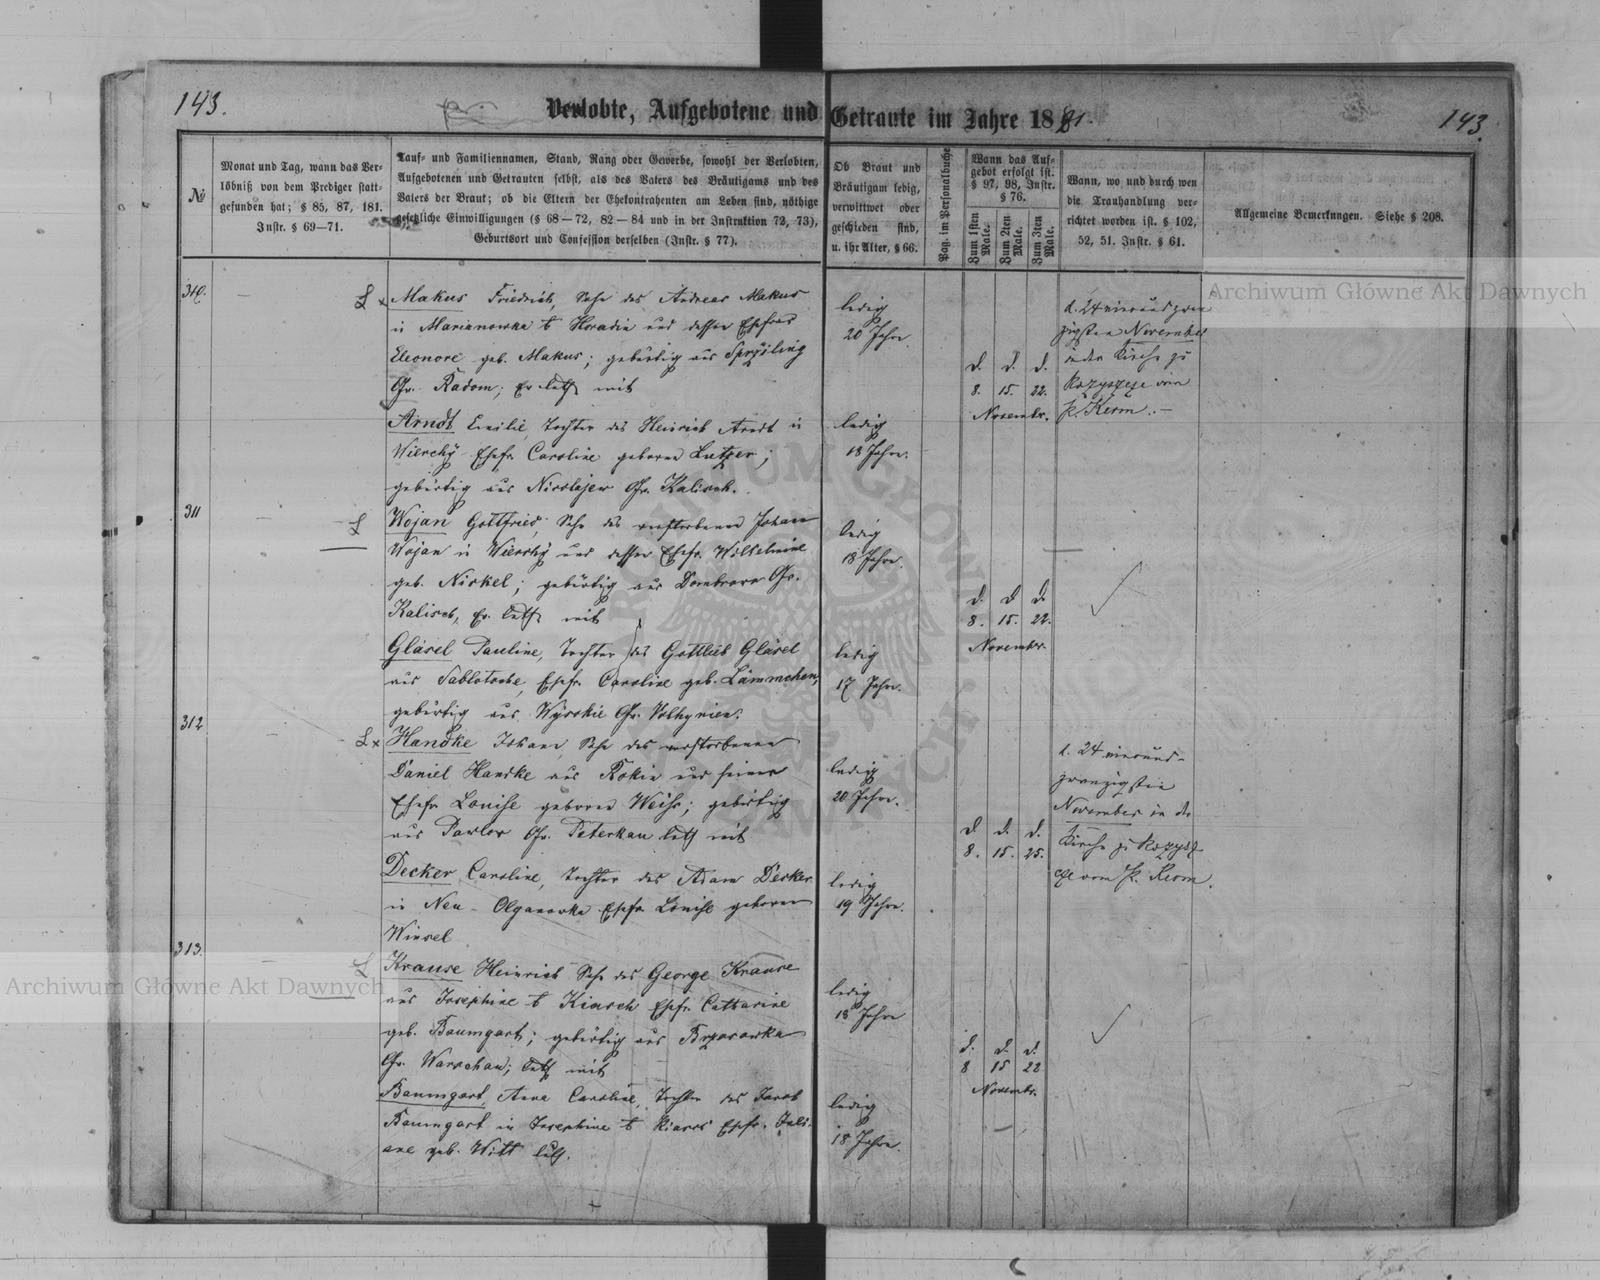 143.
Verlobte, Aufgebotene und Getraute im Jahre 1881.
143.
№
Monat und Tag, wann das Ver-
löbniß von dem Prediger statt-
gefunden hat; § 85, 87, 181.
Instr. § 69—71.
Tauf- und Familiennamen, Stand, Rang oder Gewerbe, sowohl der Verlobten,
Aufgebotenen und Getrauten selbst, als des Vaters des Bräutigams und des
Vaters der Braut; ob die Eltern der Ehekontrahenten am Leben sind, nöthige
gesetzliche Einwilligungen (§ 68—72, 82—84 und in der Instruktion 72, 73),
Geburtsort und Confession derselben (Instr. § 77).
Ob Braut und
Bräutigam ledig,
verwittwet oder
geschieden sind,
u. ihr Alter, § 66.
Pag. im Personalbuche
Wann das Auf-
gebot erfolgt ist.
§ 97, 98, Instr.
§ 76.
Zum 1sten Male.
Zum 2ten Male.
Zum 3ten Male.
Wann, wo und durch wen
die Trauhandlung ver-
richtet worden ist. § 102,
52, 51. Instr. § 61.
Allgemeine Bemerkungen. Siehe § 208.
310.
Makus Friedrich, Sohn des Andreas Makus
in Marianowka b Horadin und dessen Ehefrau
Eleonore geb. Makus; gebürtig aus
Gv. Radom; Ev. luth mit
Arndt Emilie, Tochter des Heinrich Arndt in
Wierchy Ehefr. Caroline geboren Lutzer;
gebürtig aus Nicolajew Gv. Kalisch.
ledig
20 Jahre.
ledig
18 Jahre.
d. d. d.
8. 15. 22.
Novembr.
d. 24 vierundzwan
zigsten November
in der Kirche zu
Rozyszcze vom
P. Kerm.
311
Wojan Gottfried, Sohn des verstorbenen Johann
Wojan in Wierchy und dessen Ehefr. Wilhelmine
geb. Nickel; gebürtig aus Dombrowa Gv.
Kalisch, Ev. luth mit
Gläsel Pauline, Tochter des Gottlieb Gläsel
aus Sablotsche, Ehefr. Caroline geb. Lämmchen,
gebürtig aus Wysokie Gv. Volhynien.
ledig
18 Jahre.
ledig
17 Jahre.
d. d d.
8. 15. 22.
November
312
Handke Johann, Sohn des verstorbenen
Daniel Handke aus Rokin und seiner
Ehefr. Louise geboren Weiss; gebürtig
aus Pawlow Gv. Peterkau luth mit
Decker Caroline, Tochter des Adam Decker
in Neu-Olganowka Ehefr. Louise geboren
Wiesel
ledig
20 Jahre.
ledig
19 Jahre.
d d. d.
8. 15. 25.
d. 24 vierund-
zwanzigsten
November in der
Kirche zu Rozysz-
cze vom P. Kerm.
313.
Krause Heinrich Sohn des George Krause
aus Josephine b Kiasch Ehefr. Catharine
geb. Baumgart; gebürtig aus
Gv. Warschau; luth mit
Baumgart, Anna Caroline, Tochter des Jacob
Baumgart in Josephine b Ehefr. Juli-
ane geb. Witt luth.
ledig
18 Jahre
ledig
18 Jahre.
d. d. d.
8 15 22
Novembr.
Archiwum Główne Akt Dawnych
Archiwum Główne Akt Dawnych